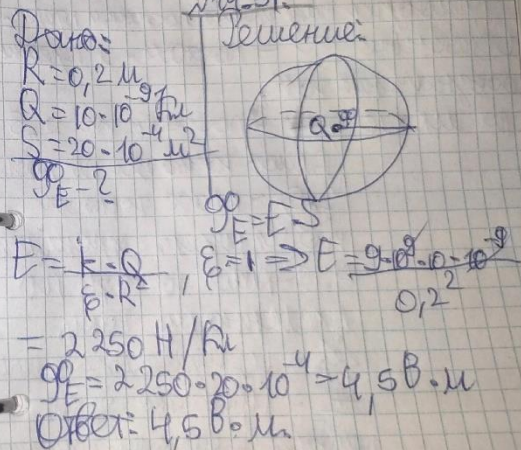 Дано:
R = 0,2 м
Q = 10 · 10⁻⁹ Кл
S = 20 · 10⁻⁴ м²
φ_E - ?
Решение:
Q
φ_E = E S
E = k · Q / ε · R² , ε = 1 => E = 9 · 10⁹ · 10 · 10⁻⁹ / 0,2²
= 2250 Н/Кл
φ_E = 2250 · 20 · 10⁻⁴ = 4,5 В · м
Ответ: 4,5 В · м.